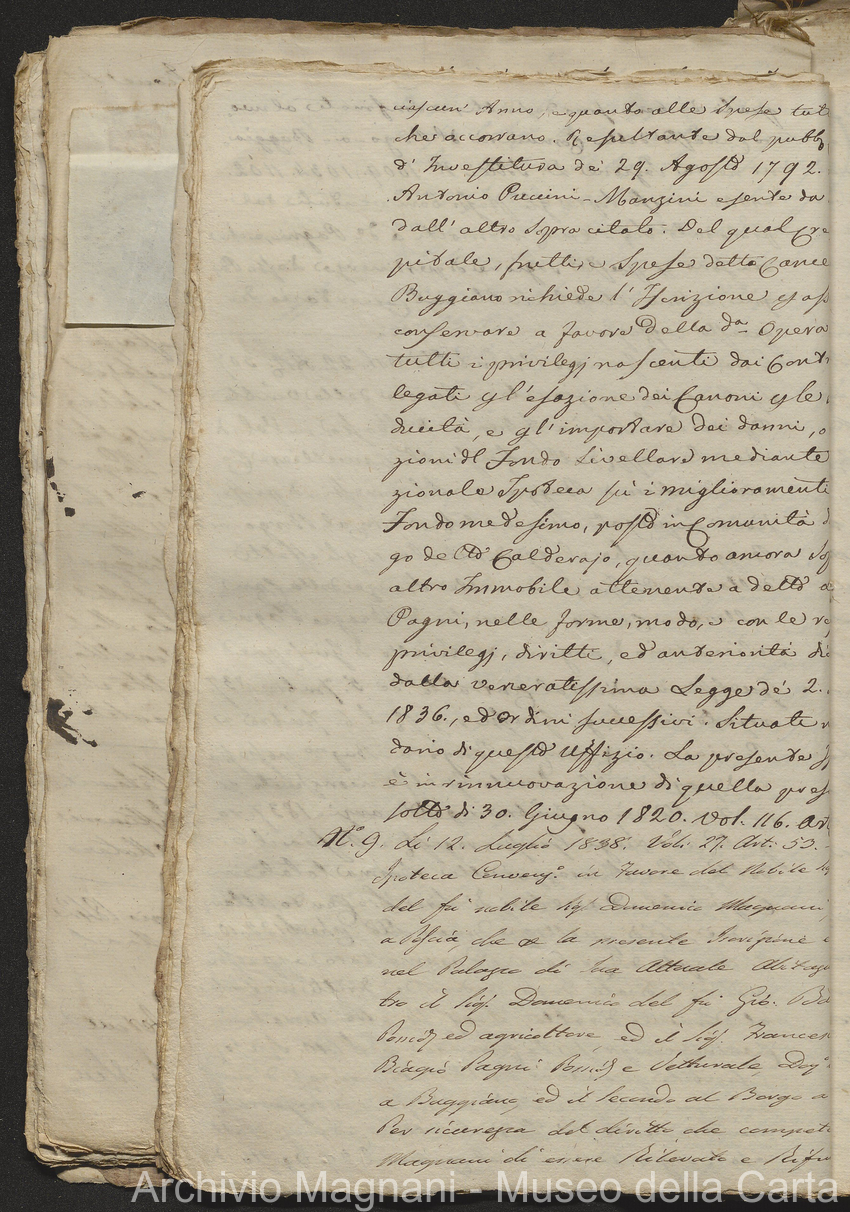 ciascun' Anno, e quanto alle Spese tut
che accorrano. Resultante dal pubb
d' Investitura de' 29. Agosto 1792.
Antonio Puccini-Manzini esente da
dall' altro sopra citato. Del qual Cre
pitale, frutti, e Spese detto Cance
Buggiano richiede l' Iscrizione
conservare a favore della da. Opera
tutti i privilegj nascenti dai Cont
legati l' esazione dei Canoni le
ducità, e l' importare dei danni, o
zioni dl Fondo Livellare mediante
zionale Ipoteca su i miglioramenti
Fondo medesimo, posto in Comunità d
go detto Calderajo, quando ancora So
altro Immobile attenente a detto
Pagni, nelle forme, modo, e con le re
privilegj, diritti, ed anteriorità di
dalla veneratissima Legge de' 2.
1836., ed ordini successivi. Situati
dario di questo Uffizio. La presente
è in rinnuovazione di quella pres
sotto dì 30. Giugno 1820. vol. 116. Art
No. 9. Lì 12. Luglio 1838. Vol: 27. Art: 53.
Ipoteca in Favore del Nobile
del fù nobile Sig. Domenico Magnani,
a Pescia che la presente Iscrizione
nel Palazzo di sua Attuale Abitaz
tro il Sig. Domenico del fù Gio. Ba
ed agricoltore, ed il Sig. Frances
Biagio Pagni e Vetturale
a Buggiano, ed il Secondo al Borgo a
Per sicurezza del diritto che compet
Magnani di essere Rilevato e
Archivio Magnani - Museo della Carta